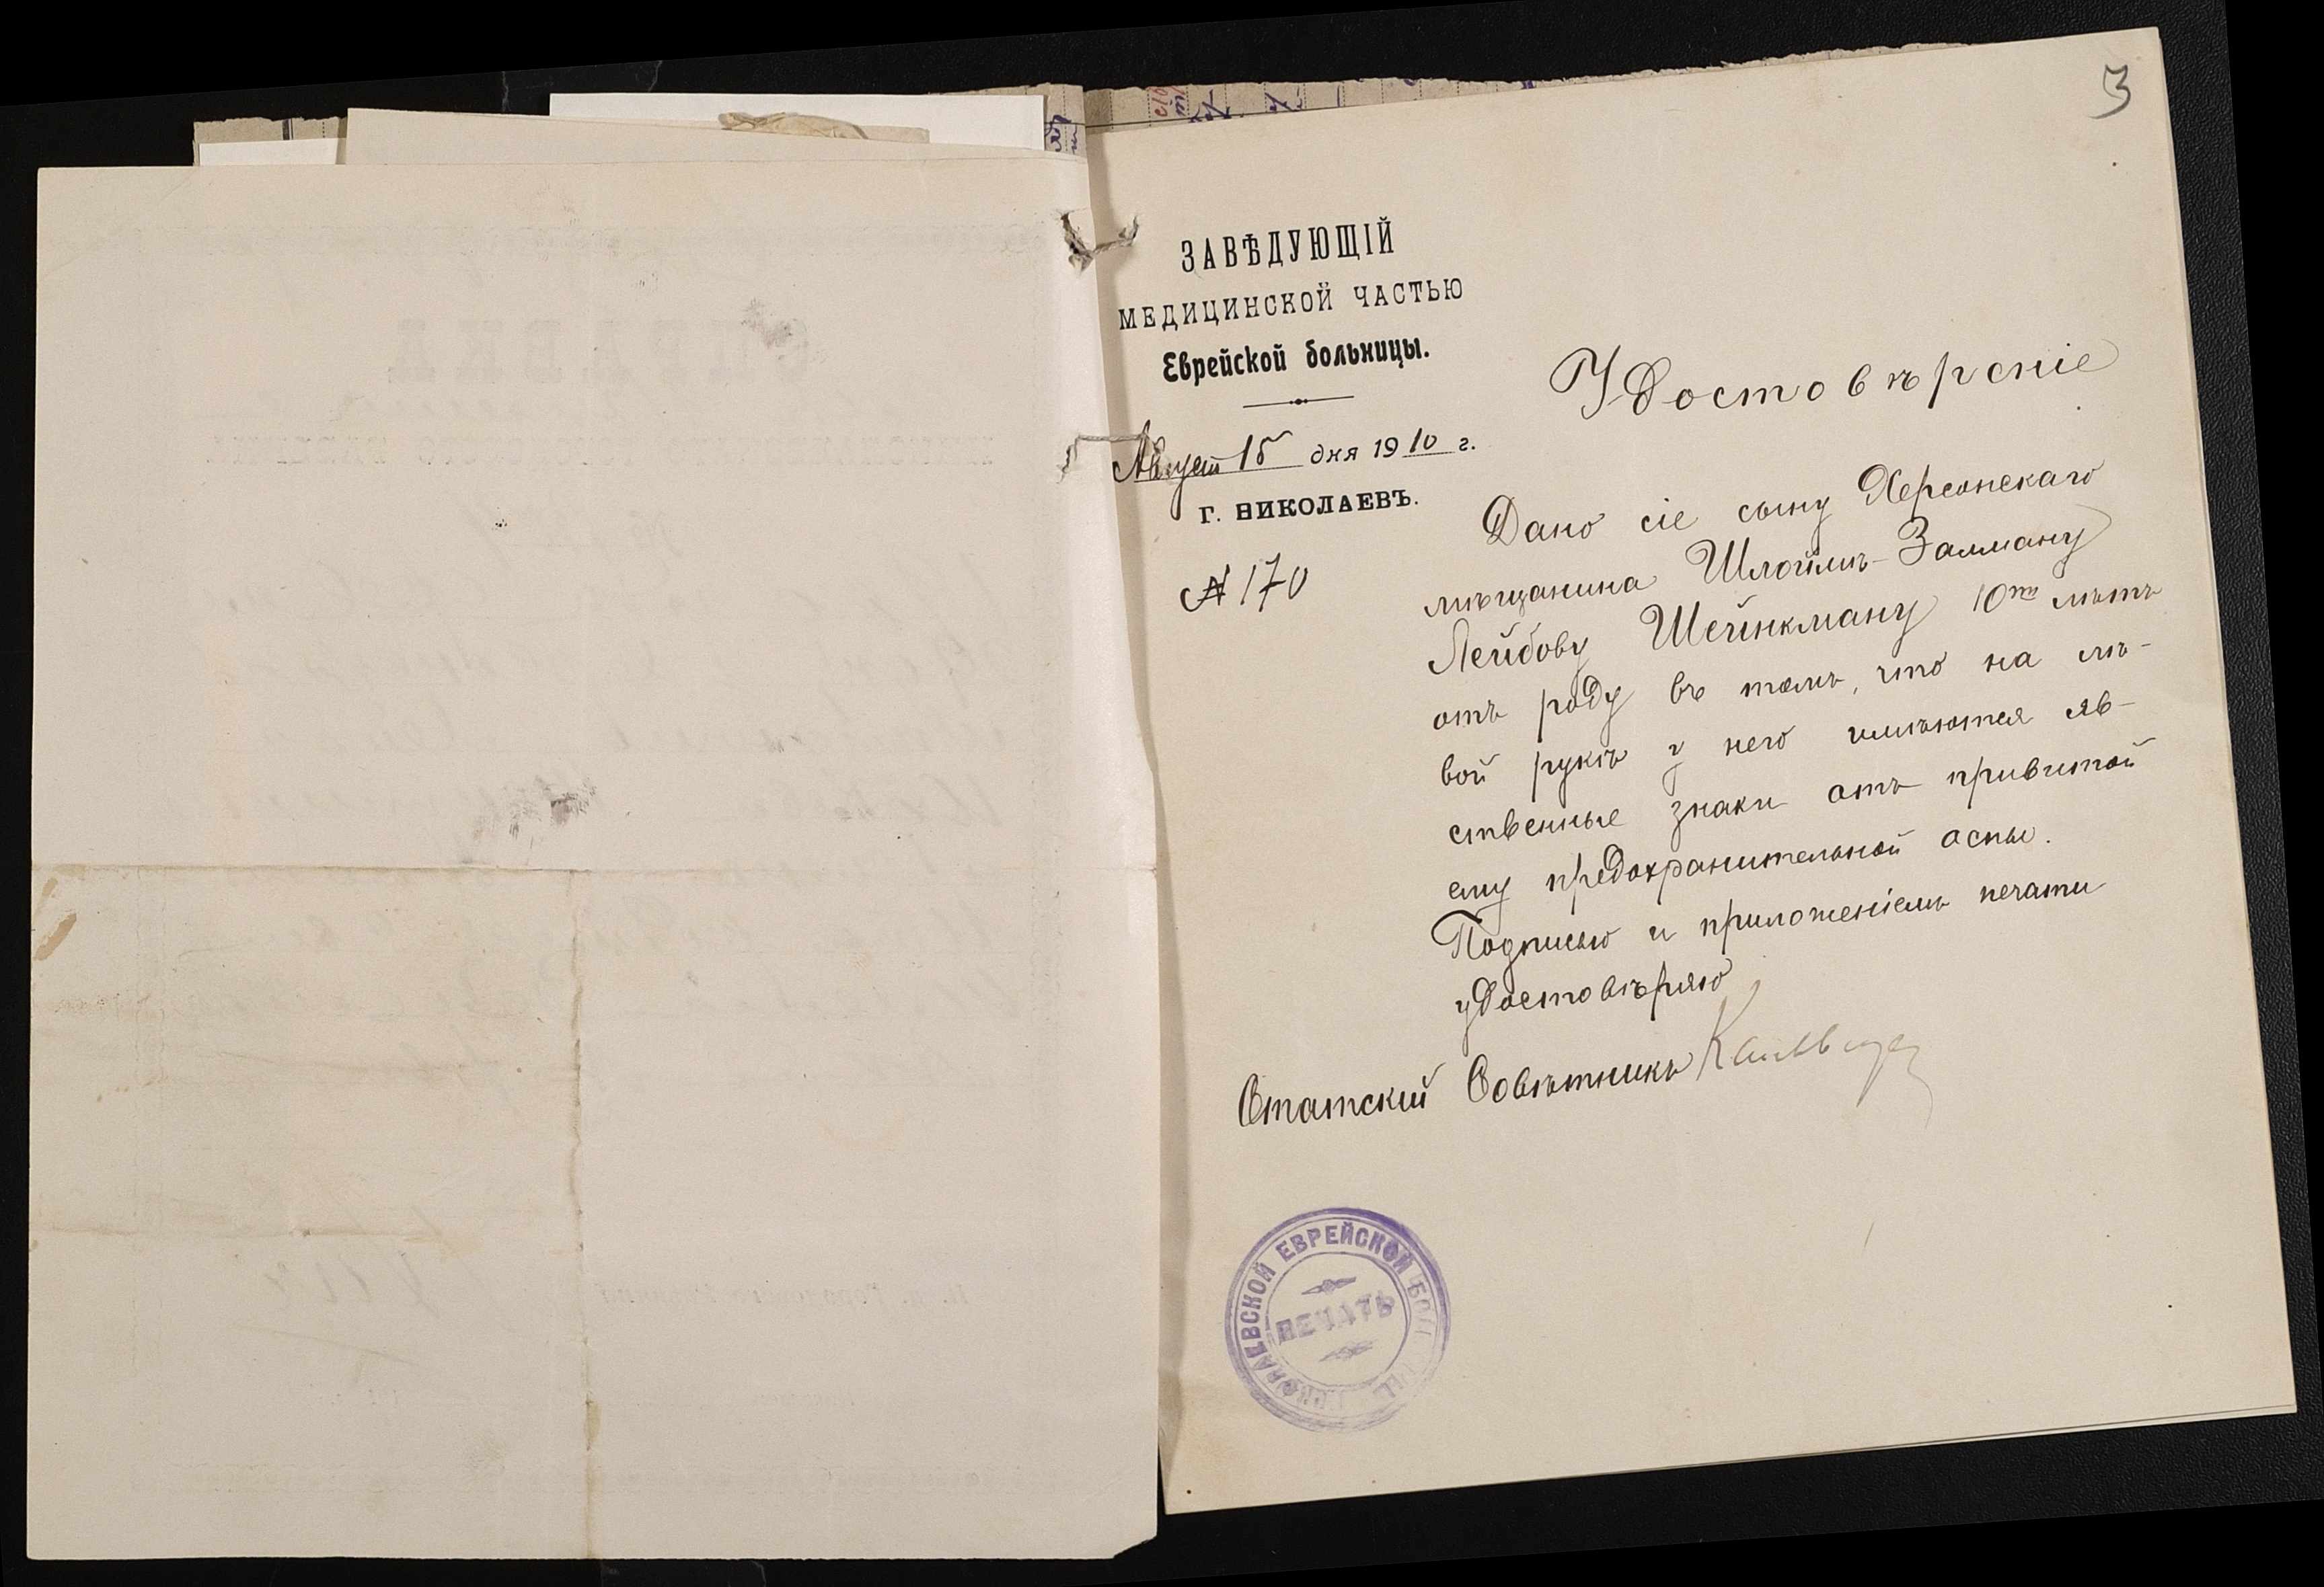 3
ЗАВѢДУЮЩІЙ
МЕДИЦИНСКОЙ ЧАСТЬЮ
Еврейской больницы.
Август 15 дня 1910 г.
Г. НИКОЛАЕВЪ.
№ 170
Удостовѣреніе
Дано сіе сыну Херсонскаго
мѣщанина Шлоймѣ-Залману
Лейбову Шейнкману 10ти лѣтъ
отъ роду въ томъ, что на лѣ-
вой рукѣ у него имѣются яв-
ственные знаки отъ привитой
ему предохранительной оспы.
Подписью и приложеніемъ печати
удостовѣряю
Статскій Совѣтникъ
НИКОЛАЕВСКОЙ ЕВРЕЙСКОЙ
ПЕЧАТЬ